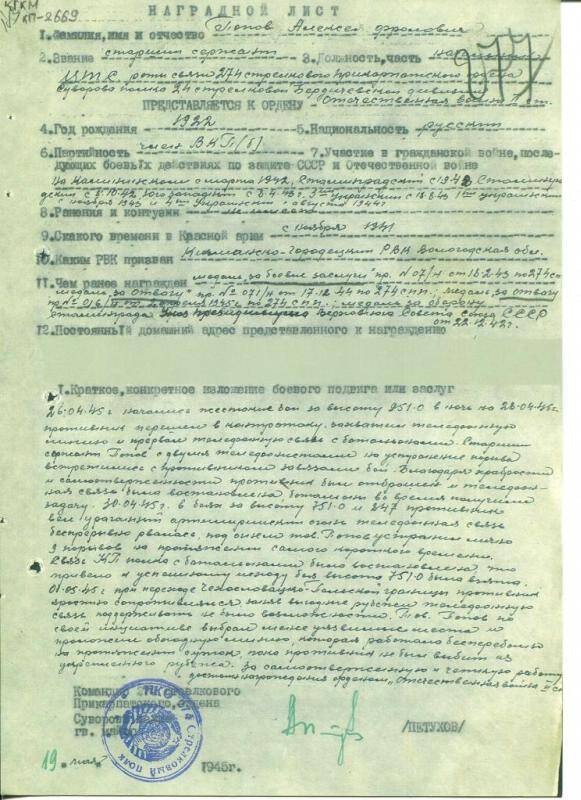 КГКМ
КП-2669
НАГРАДНОЙ ЛИСТ
1. Фамилия, имя и отчество Попов Алексей Фролович
2. Звание старший сержант 3. Должность, часть начальник
ЦТС роты связи 274 стрелкового Прикарпатского ордена
Суворова полка 24 стрелковой Бердичевской дивизии
ПРЕДСТАВЛЯЕТСЯ К ОРДЕНУ Отечественная война II ст.
4. Год рождения 1922 5. Национальность русский
6. Партийность член ВКП/б/ 7. Участие в гражданской войне, после-
дующих боевых действиях по защите СССР и Отечественной войне
На Калининском с марта 1942, Сталинградский с
с ноября 1943 и 4ый Украинский с августа 1944г.
8. Ранения и контузии не имеет
9. Скакого времени в Красной арми с ноября 1941
10. Каким РВК призван Кичманго-Городецким РВК Вологодская обл.
11. Чем ранее награжден медаль за боевые заслуги пр. №07/н от 18.2.43 по 274 сп
медаль за отвагу пр. №071/н от 17.12.44 по 274 с.п.; медаль за отвагу
по 274 с.п.; медаль за оборону
Сталинграда Указ президиума Верховного Совета Союза СССР
от 22.12.42г.
12. ПостоянныЙ домашний адрес представленного к награждению
I. Краткое, конкретное изложение боевого подвига или заслуг
26.04.45г начались жестокие бои за высоту 751.0 в ночь на 28.04.45г
противник перешел в контратаку, захватил телефонную
линию и прервал телефонную связь с батальонами. Старший
сержант Попов с двумя телефонистами на устранение порыва
встретились с противником завязали бой. Благодаря храбрости
и самоотверженности противник был отброшен и телефон-
ная связь была востановлена батальоны во время получили
задачу. 30.04.45г. в боях за высоту 751.0 и 847 противник
вел ураганный артиллерийский огонь телефонная связь
беспрерывно рвалась, под огнем тов. Попов устранил лично
9 порывов на протяжении самого короткого времени.
Связь КП полка с батальонами была востановлена, что
привело к успешному исходу боя высота 751.0 была взята.
01.05.45г при переходе Чехословацко-Польской границы противник
яростно сопротивлялся на выгодные рубежи телефонную
связь поддерживать не было возможности. Тов. Попов по
своей инициативе выбрал менее уязвимые места и
проложил обходную линию, которая работала бесперебойно
на протяжении суток, пока противник не был выбит из
укрепленного рубежа. За самоотверженную и четкую работу
достоин награждения орденом „Отечественная война" II ст
Командир 274 стрелкового
Прикарпатского ордена
Суворова полка
гв. майор /ПЕТУХОВ/
19 мая 1945г.